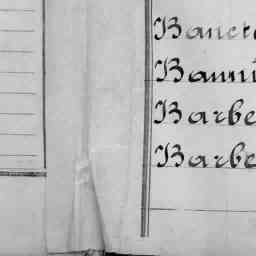 Bancr
Banni
Barbe
Barbe